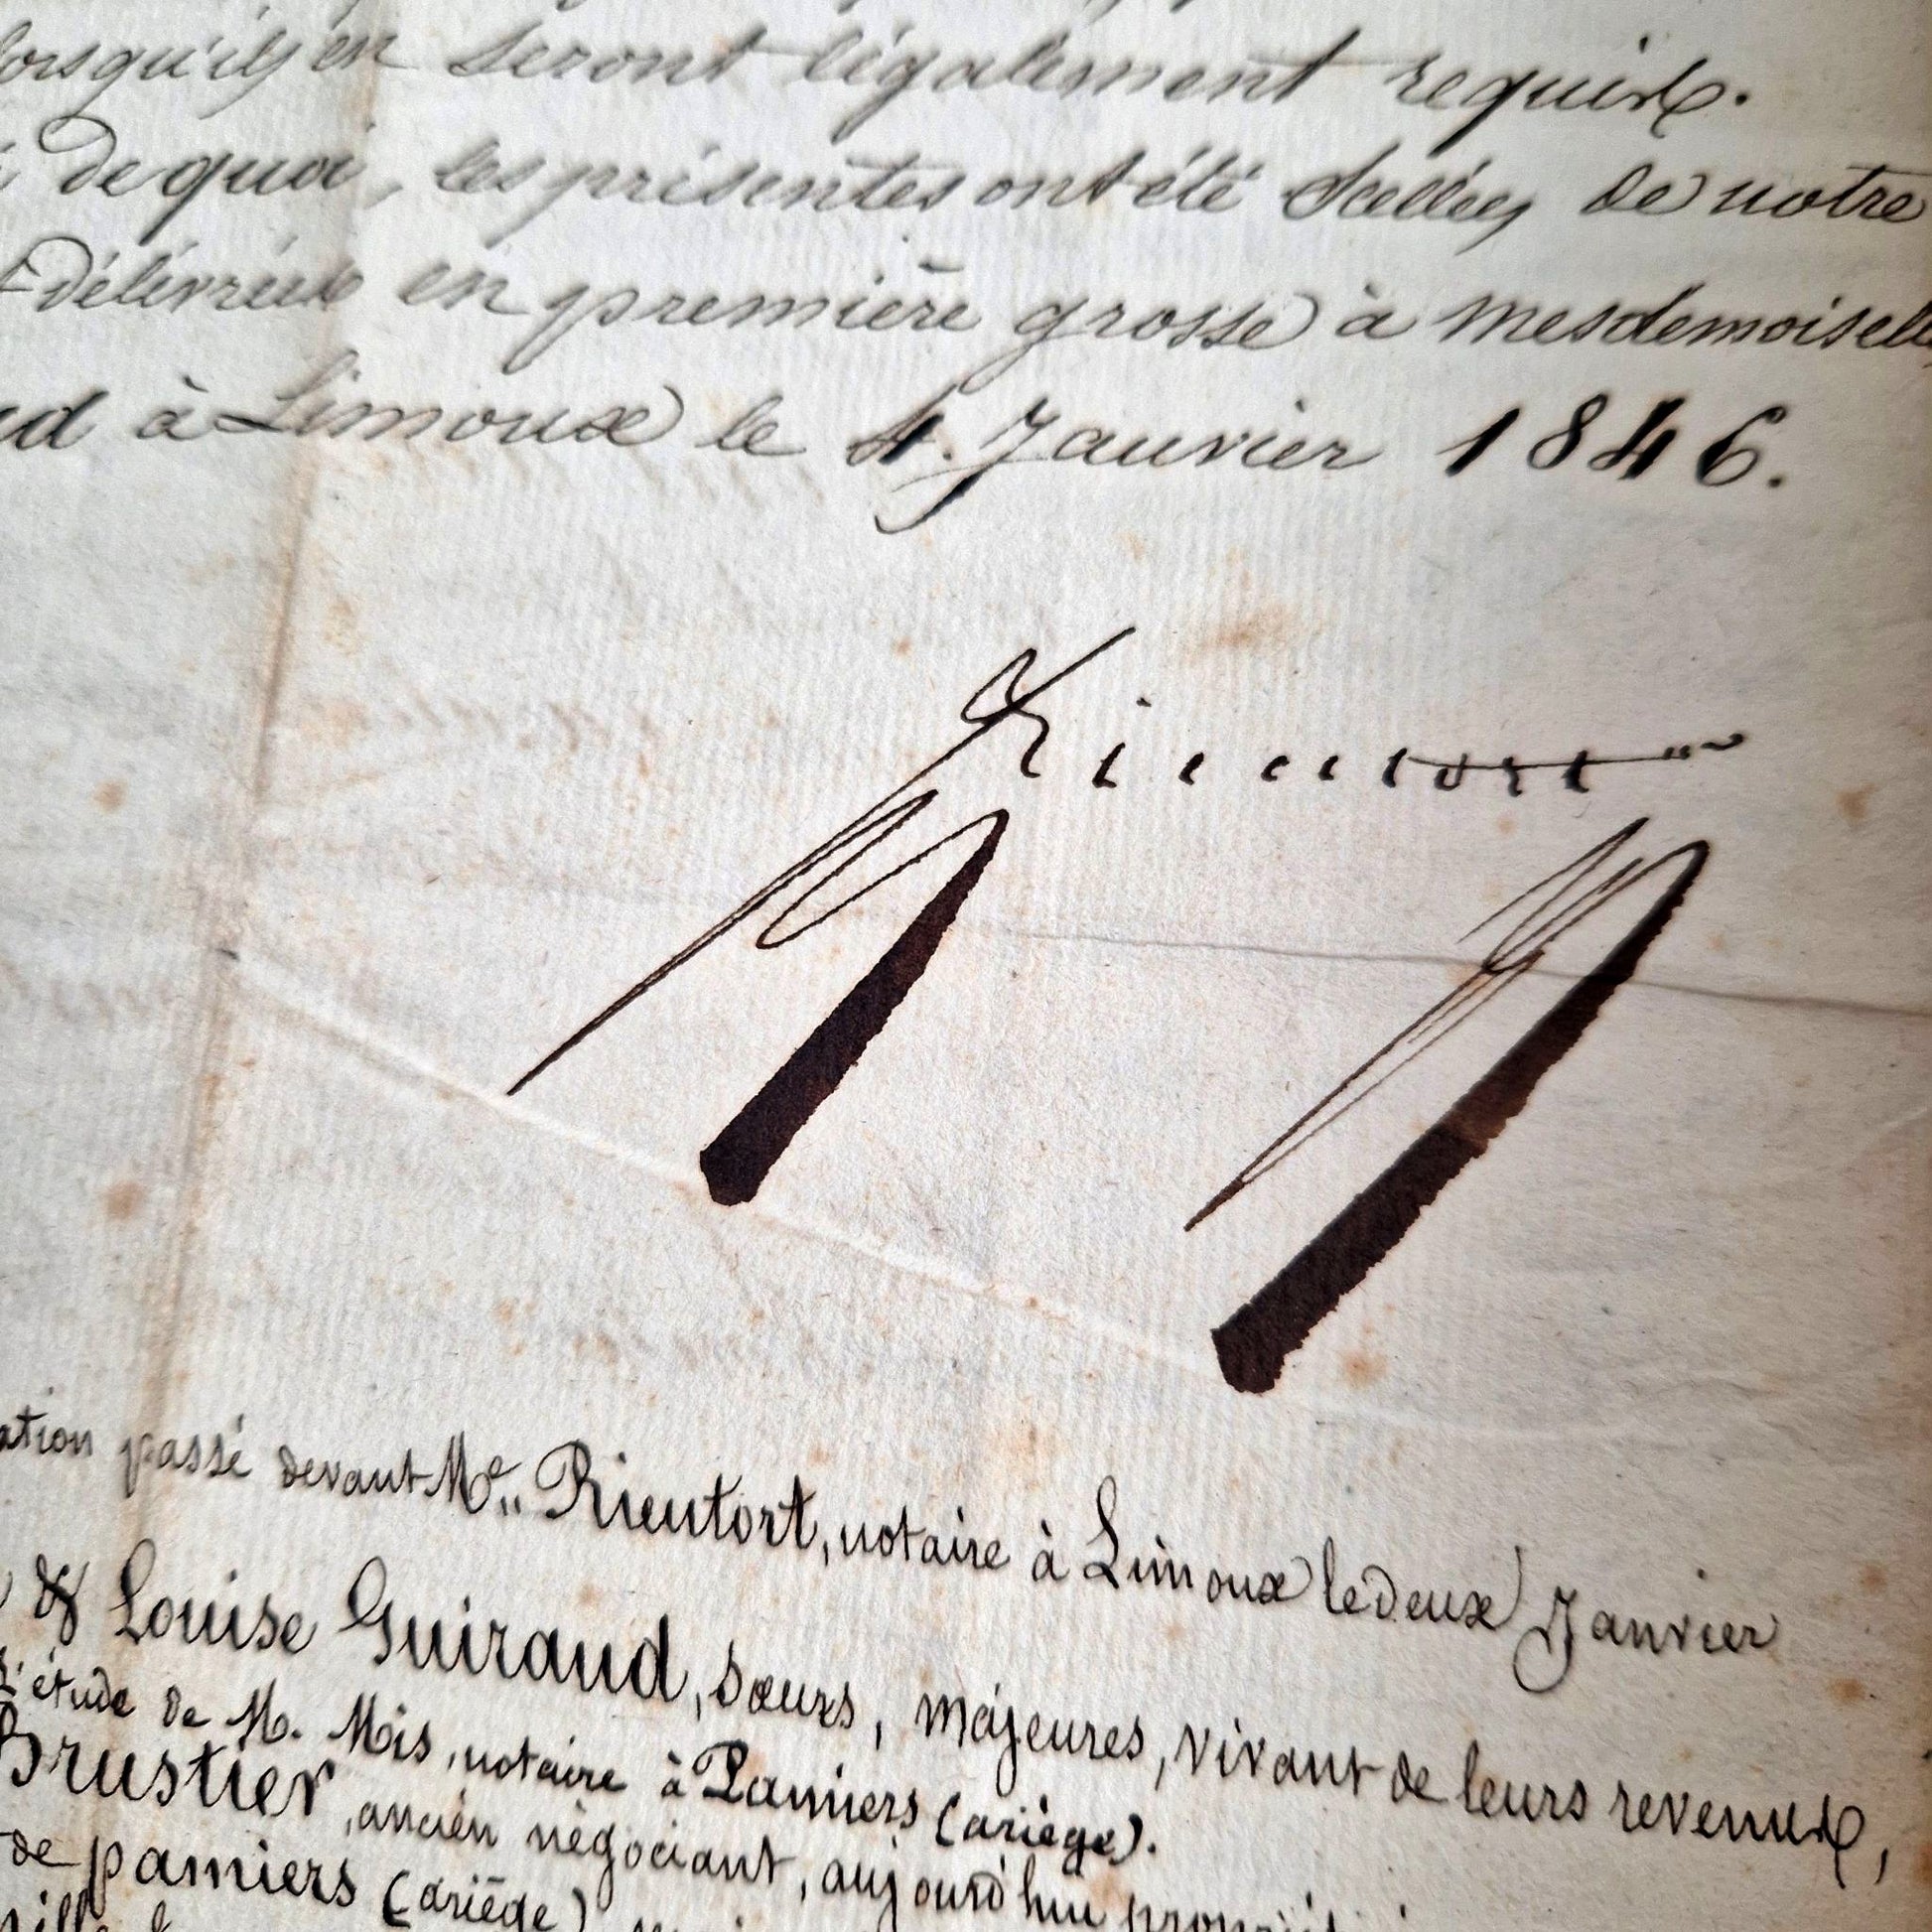 lorsqu'ils en seront légalement requis.
de quoi, les présentes ont été scellées de notre
délivrées en première grosse à mesdemoiselle
à Limoux le 4. Janvier 1846.
Rieutort
ation passé devant Me Rieutort, notaire à Limoux le deux Janvier
& Louise Guiraud, sœurs, majeures, vivant de leurs revenus,
l'étude de M. Mis, notaire à Pamiers (ariège).
Brustier, ancien négociant, aujourd'hui propriét
de pamiers (ariège)